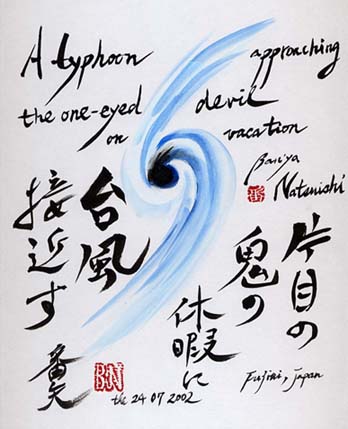 A typhoon approaching
the one-eyed devil
on vacation
Baniya
Natsuishi
片目の
鬼の
休暇に
台風
接近す
番矢
BN
the 24 07 2002
Fujimi, Japan